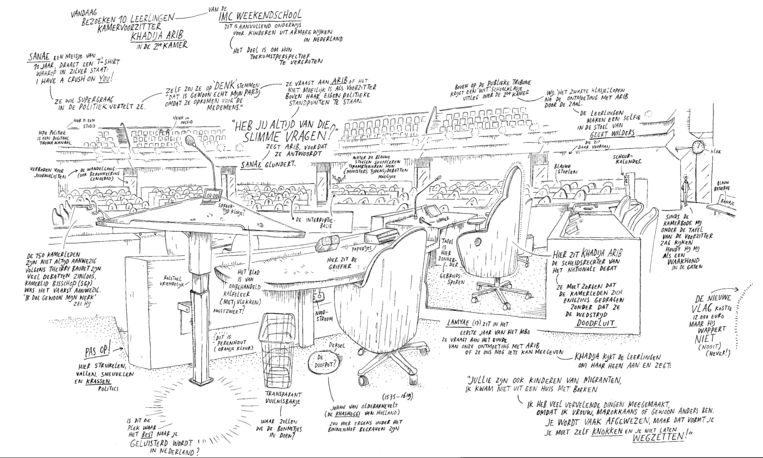 VANDAAG
BEZOEKEN 10 LEERLINGEN
KAMERVOORZITTER
KHADIJA ARIB
IN DE 2DE KAMER
VAN DE
IMC WEEKENDSCHOOL
DIT IS AANVULLEND ONDERWIJS
VOOR KINDEREN UIT ARMERE WIJKEN
IN NEDERLAND
HET DOEL IS OM HUN
TOEKOMSTPERSPECTIEF
TE VERGROTEN
SANAE EEN MEISJE VAN
JAAR, DRAAGT EEN T-SHIRT
WAAROP IN ZILVER STAAT:
I HAVE A CRUSH ON YOU!
ZE WIL SUPERGRAAG
IN DE POLITIEK VERTELT ZE.
ZELF ZOU ZE OP 'DENK' STEMMEN
"DAT IS GEWOON ECHT MIJN PARTIJ
OMDAT ZE OPKOMEN VOOR DE
MEDEMENS"
ZE VRAAGT AAN ARIB OF HET
NIET MOEILIJK IS ALS VOORZITTER
BOVEN HAAR EIGEN POLITIEKE
STANDPUNTEN TE STAAN.
"HEB JIJ ALTIJD VAN DIE
SLIMME VRAGEN!"
ZEGT ARIB, VOORDAT
ZE ANTWOORDT
SANAE GLUNDERT
BOVEN OP DE PUBLIEKE TRIBUNE
KRIJGT EEN WIT SCHOOLKLASJE
UITLEG OVER DE 2DE KAMER
NA DE ONTMOETING MET ARIB
DOOR DE ZAAL.
DE LEERLINGEN
MAKEN EEN SELFIE
IN DE STOEL VAN
GEERT WILDERS
BLAUWE
STOELEN
SCHEUR-
KALENDER
VERBODEN VOOR
JOURNALISTEN
DE WANDELGANG
DE INTERRUPTIE
BALIE
DE 150 KAMERLEDEN
ZIJN NIET ALTIJD AANWEZIG
VOLGENS THIERRY BAUDET ZIJN
VEEL DEBATTEN ZINLOOS,
KAMERLID BISSCHOP (SGP)
WAS HET VAAKST AANWEZIG.
"IK DOE GEWOON MIJN WERK"
ZEI HIJ
HET BLAD
IS VAN
ONBEHANDELD
KALFSLEER
(MET VLEKKEN)
HIER ZIT DE
GRIFFIER
NOOD-
STROOM
DIT IS
PERENHOUT
(ORANJE KLEUR)
TAFEL
IS HIER
GEBRUIKS-
SPOREN
HIER ZIT KHADIJA ARIB
DE SCHEIDSRECHTER VAN
HET NATIONALE DEBAT
ZE MOET ZORGEN DAT
DE KAMERLEDEN ZICH
ENIGZINS GEDRAGEN
ZONDER DAT ZE
DE WEDSTRIJD
DOODFLUIT
SINDS DE
KAMERBODE MIJ
ONDER DE TAFEL
VAN DE VOORZITTER
ZAG KIJKEN
HOUDT HIJ MIJ
ALS EEN
WAAKHOND
IN DE GATEN
DE NIEUWE
VLAG KOSTTE
12.000 EURO
MAAR HIJ
WAPPERT
NIET
(NOOIT)
(NEVER!)
PAS OP!
HIER STRUIKELEN,
VALLEN, SNEUVELEN
EN KRASSEN
POLITICI
IS DIT DE
PLEK WAAR
HET BEST NAAR JE
GELUISTERD WORDT
IN NEDERLAND?
TRANSPARANT
VUILNISBAKJE
WAAR ZOUDEN
ZE DE BONNETJES
IN DOEN?
DEKSEL
DE
DOOFPOT?
JOHAN VAN OLDEBARNEVELT
(DE KHASHOGGI VAN HOLLAND)
ZOU HIER ERGENS ONDER HET
BINNENHOF BEGRAVEN ZIJN
LAMYAE (17) ZIT IN HET
EERSTE JAAR VAN HET MBO
ZE VRAAGT AAN HET EINDE
VAN ONZE ONTMOETING MET ARIB
OF ZE ONS NOG IETS KAN MEEGEVEN
KHADIJA KIJKT DE LEERLINGEN
OM HAAR HEEN AAN EN ZEGT:
"JULLIE ZIJN OOK KINDEREN VAN MIGRANTEN,
IK KWAM NIET UIT EEN HUIS MET BOEKEN
IK HEB VEEL VERVELENDE DINGEN MEEGEMAAKT,
OMDAT IK VROUW, MAROKKAANS OF GEWOON ANDERS BEN.
JE WORDT VAAK AFGEWEZEN, MAAR DAT VORMT JE
JE MOET ZELF KNOKKEN EN JE NIET LATEN
WEGZETTEN!"